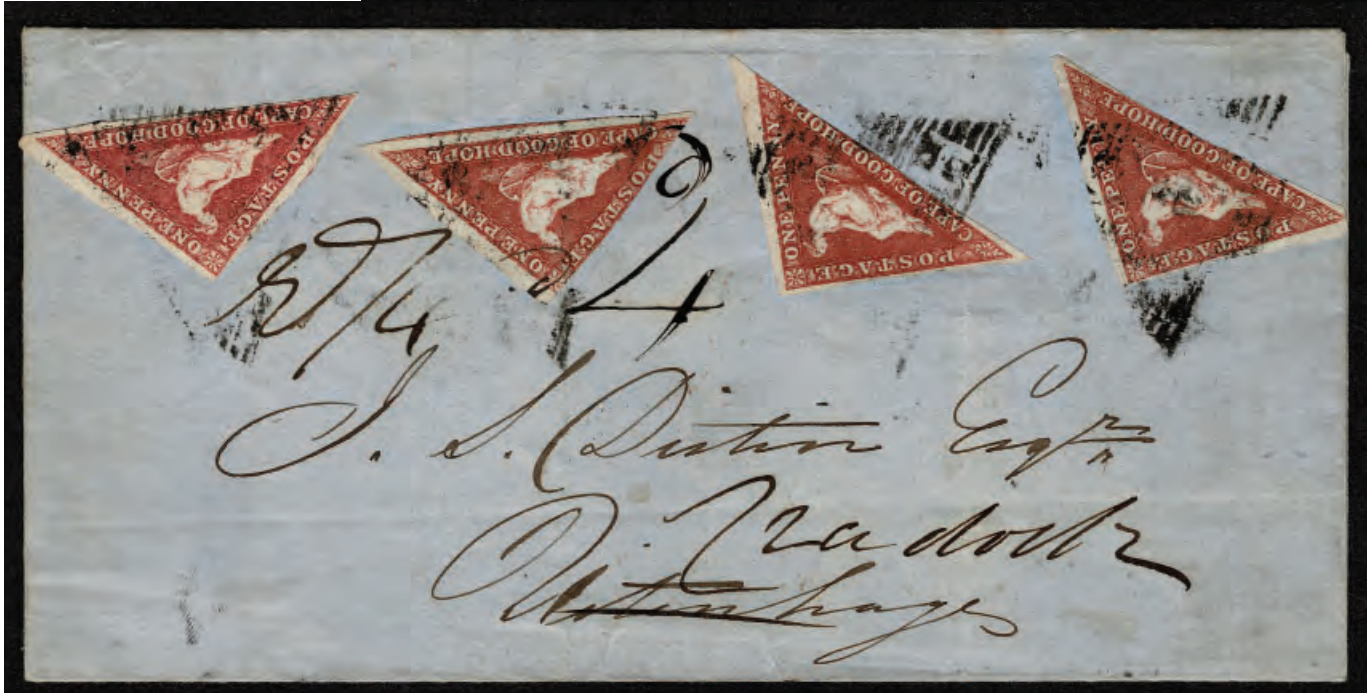 CAPE OF GOOD HOPE POSTAGE ONE PENNY
CAPE OF GOOD HOPE POSTAGE ONE PENNY
CAPE OF GOOD HOPE POSTAGE ONE PENNY
CAPE OF GOOD HOPE POSTAGE ONE PENNY
J. S. Distin Esqre
Cradock
Uitenhage